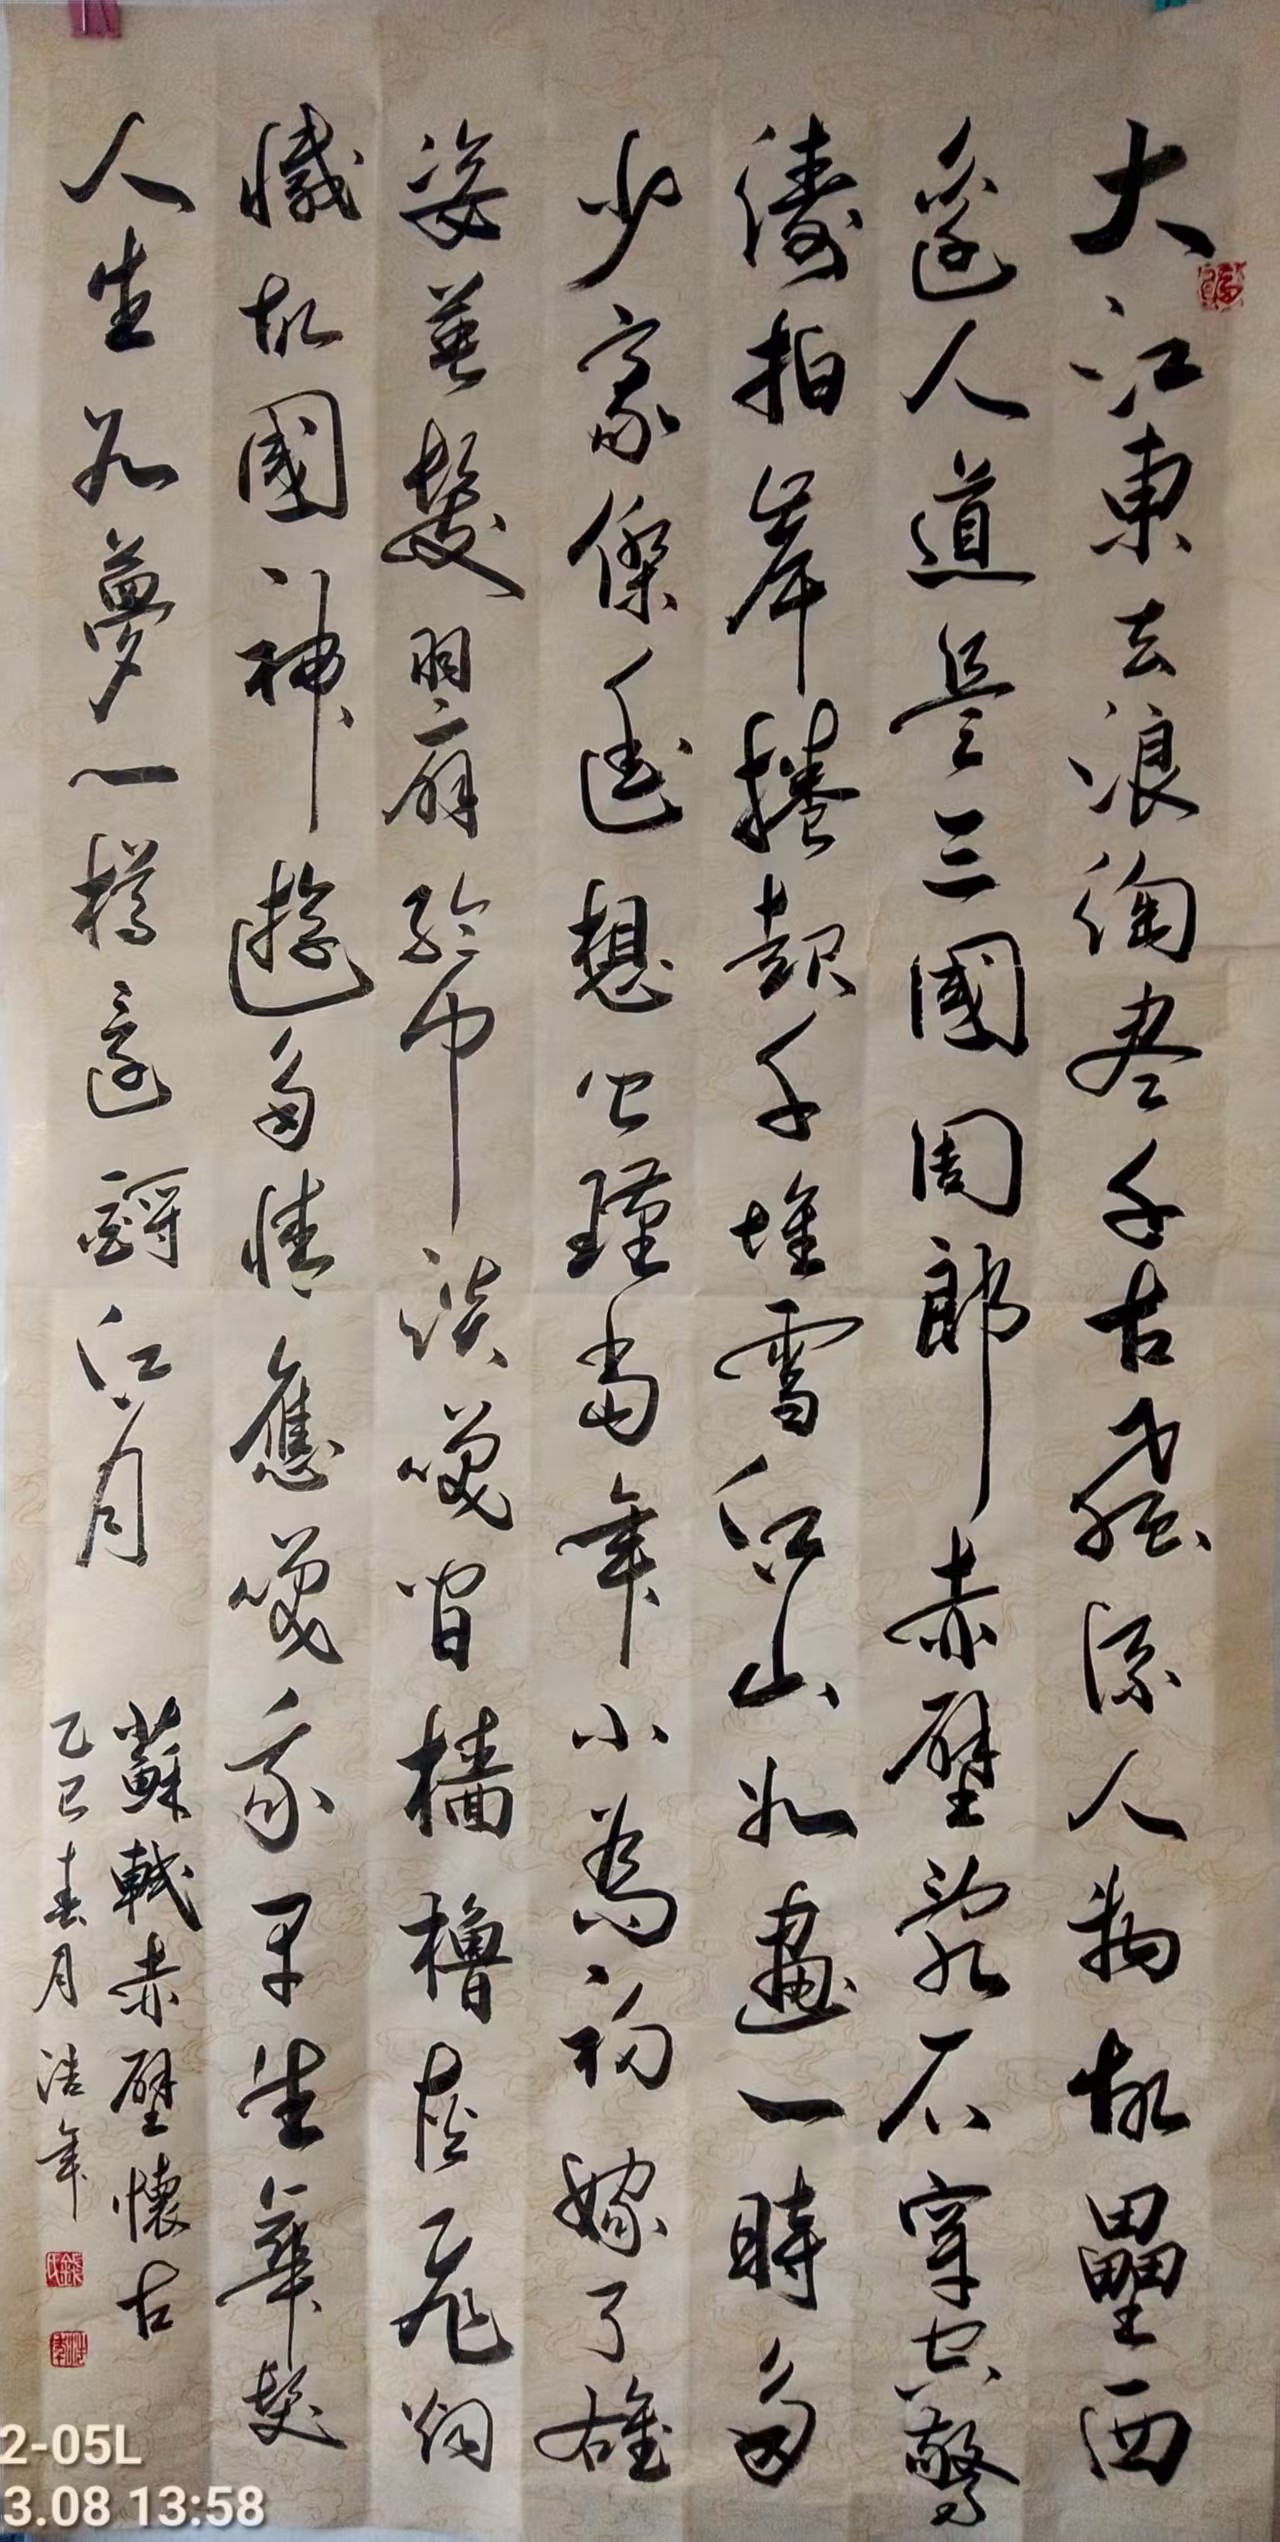 大江東去浪淘尽千古流人物故壘西
邊人道是三國周郎赤壁亂石穿空驚
濤拍岸捲起千堆雪江山如畫一時多
少豪傑遙想公瑾當年小喬初嫁了雄
姿英發羽扇綸巾談笑間檣櫓灰飛烟
滅故國神遊多情應笑我早生華髮
人生如夢一樽還酹江月
蘇軾赤壁懷古
乙巳春月浩年
2-05L
3.08 13:58